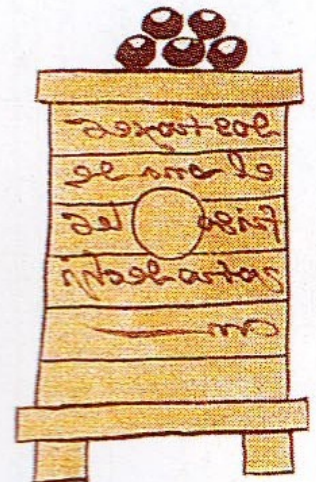 dos troxes
el una de
friso les
yotra dechi
an